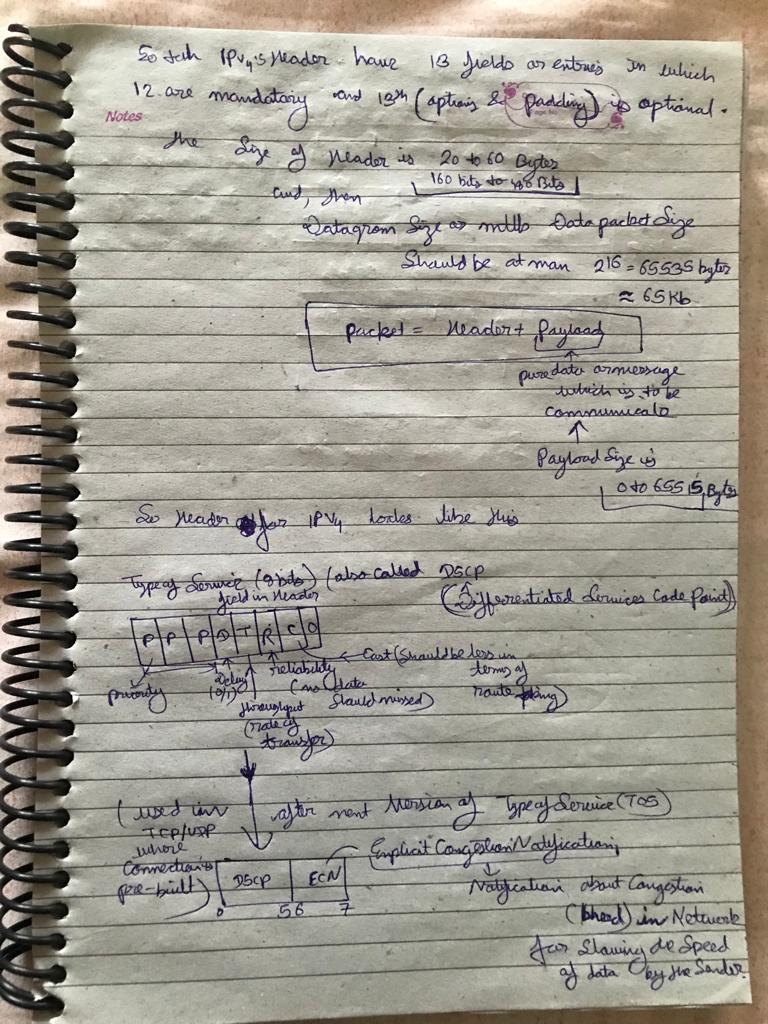 So tah IPv4's Header have 13 fields or entries in which
12 are mandatory and 13th (options & padding) is optional.
Notes
the Size of Header is 20 to 60 Bytes
160 bits to 480 Bits
and, then
Datagram Size or mtlb Datapacket Size
Should be at man 2^16 = 65535 bytes
≈ 65Kb
Packet = Header + Payload
pure data or message
which is to be
communicate
Payload Size is
0 to 65515 Bytes
So Header for IPv4 lookes like this
Type of Service (8 bits) (also called DSCP
field in Header
(Differentiated Services Code Point)
P P P D T R C 0
priority
Delay
(0/1)
throughput
(rate of
transfer)
reliability
(no data
should missed)
Cost (Should be less in
terms of
route)
(used in
TCP/UDP
where
Connection is
pre-built)
after next Version of Type of Service (TOS)
DSCP ECN
0 5 6 7
Explicit Congestion Notification
Notification about Congestion
(bheed) in Network
for Slowing de Speed
of data by the Sender.